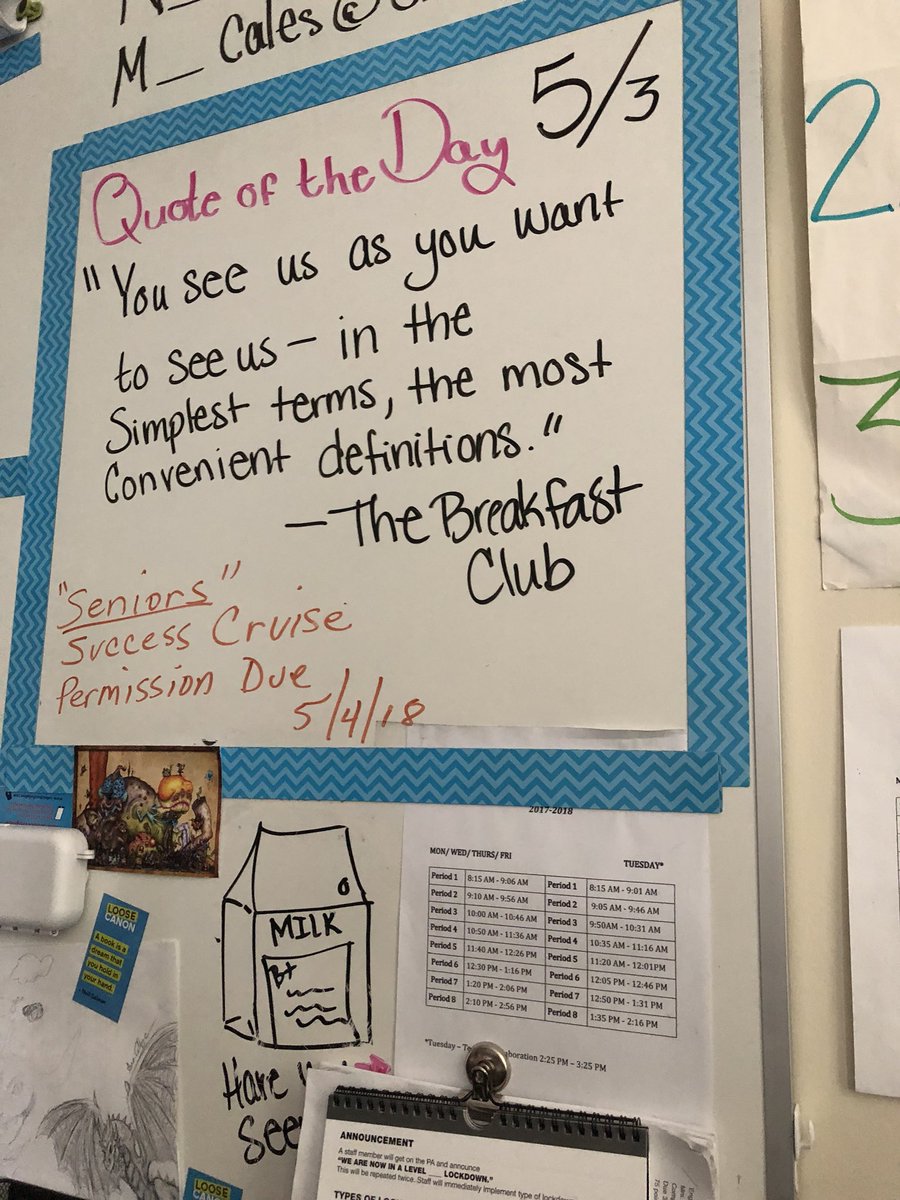 M_ Cales@
5/3
Quote of the Day
"You see us as you want
to see us — in the
Simplest terms, the most
Convenient definitions."
— The Breakfast
Club
"Seniors"
Success Cruise
Permission Due
5/4/18
2
3
LOOSE
CANON
A book is a
dream that
you hold in
your hand.
Neil Gaiman
MILK
B+
Have
See
2017-2018
MON/ WED/ THURS/ FRI TUESDAY*
Period 1 8:15 AM - 9:06 AM Period 1 8:15 AM - 9:01 AM
Period 2 9:10 AM - 9:56 AM Period 2 9:05 AM - 9:46 AM
Period 3 10:00 AM - 10:46 AM Period 3 9:50AM - 10:31 AM
Period 4 10:50 AM - 11:36 AM Period 4 10:35 AM - 11:16 AM
Period 5 11:40 AM - 12:26 PM Period 5 11:20 AM - 12:01PM
Period 6 12:30 PM - 1:16 PM Period 6 12:05 PM - 12:46 PM
Period 7 1:20 PM - 2:06 PM Period 7 12:50 PM - 1:31 PM
Period 8 2:10 PM - 2:56 PM Period 8 1:35 PM - 2:16 PM
*Tuesday – 2:25 PM – 3:25 PM
ANNOUNCEMENT
A staff member will get on the PA and announce
"WE ARE NOW IN A LEVEL ___ LOCKDOWN."
This will be repeated twice. Staff will immediately implement type of
TYPES OF
LOOSE
CANON